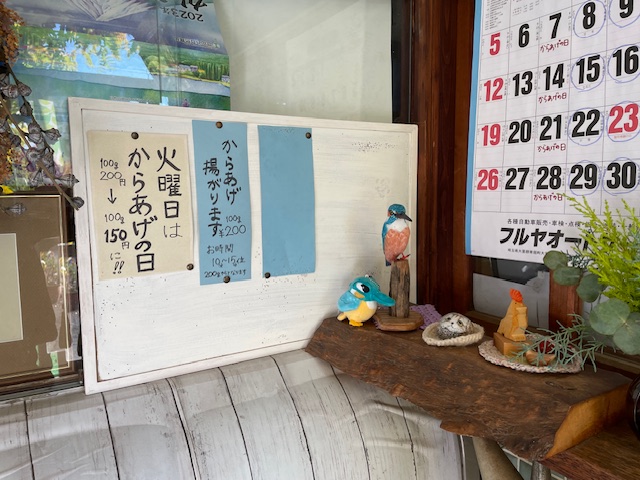 2023
火曜日は
からあげの日
100g
200円
↓
100g
150円
に!!
からあげ
揚がります
100g
¥200
お時間
5 6 7 8 9
からあげの日
12 13 14 15 16
からあげの日
19 20 21 22 23
からあげの日
26 27 28 29 30
からあげの日
各種自動車販売・車検・点検
フルヤオー